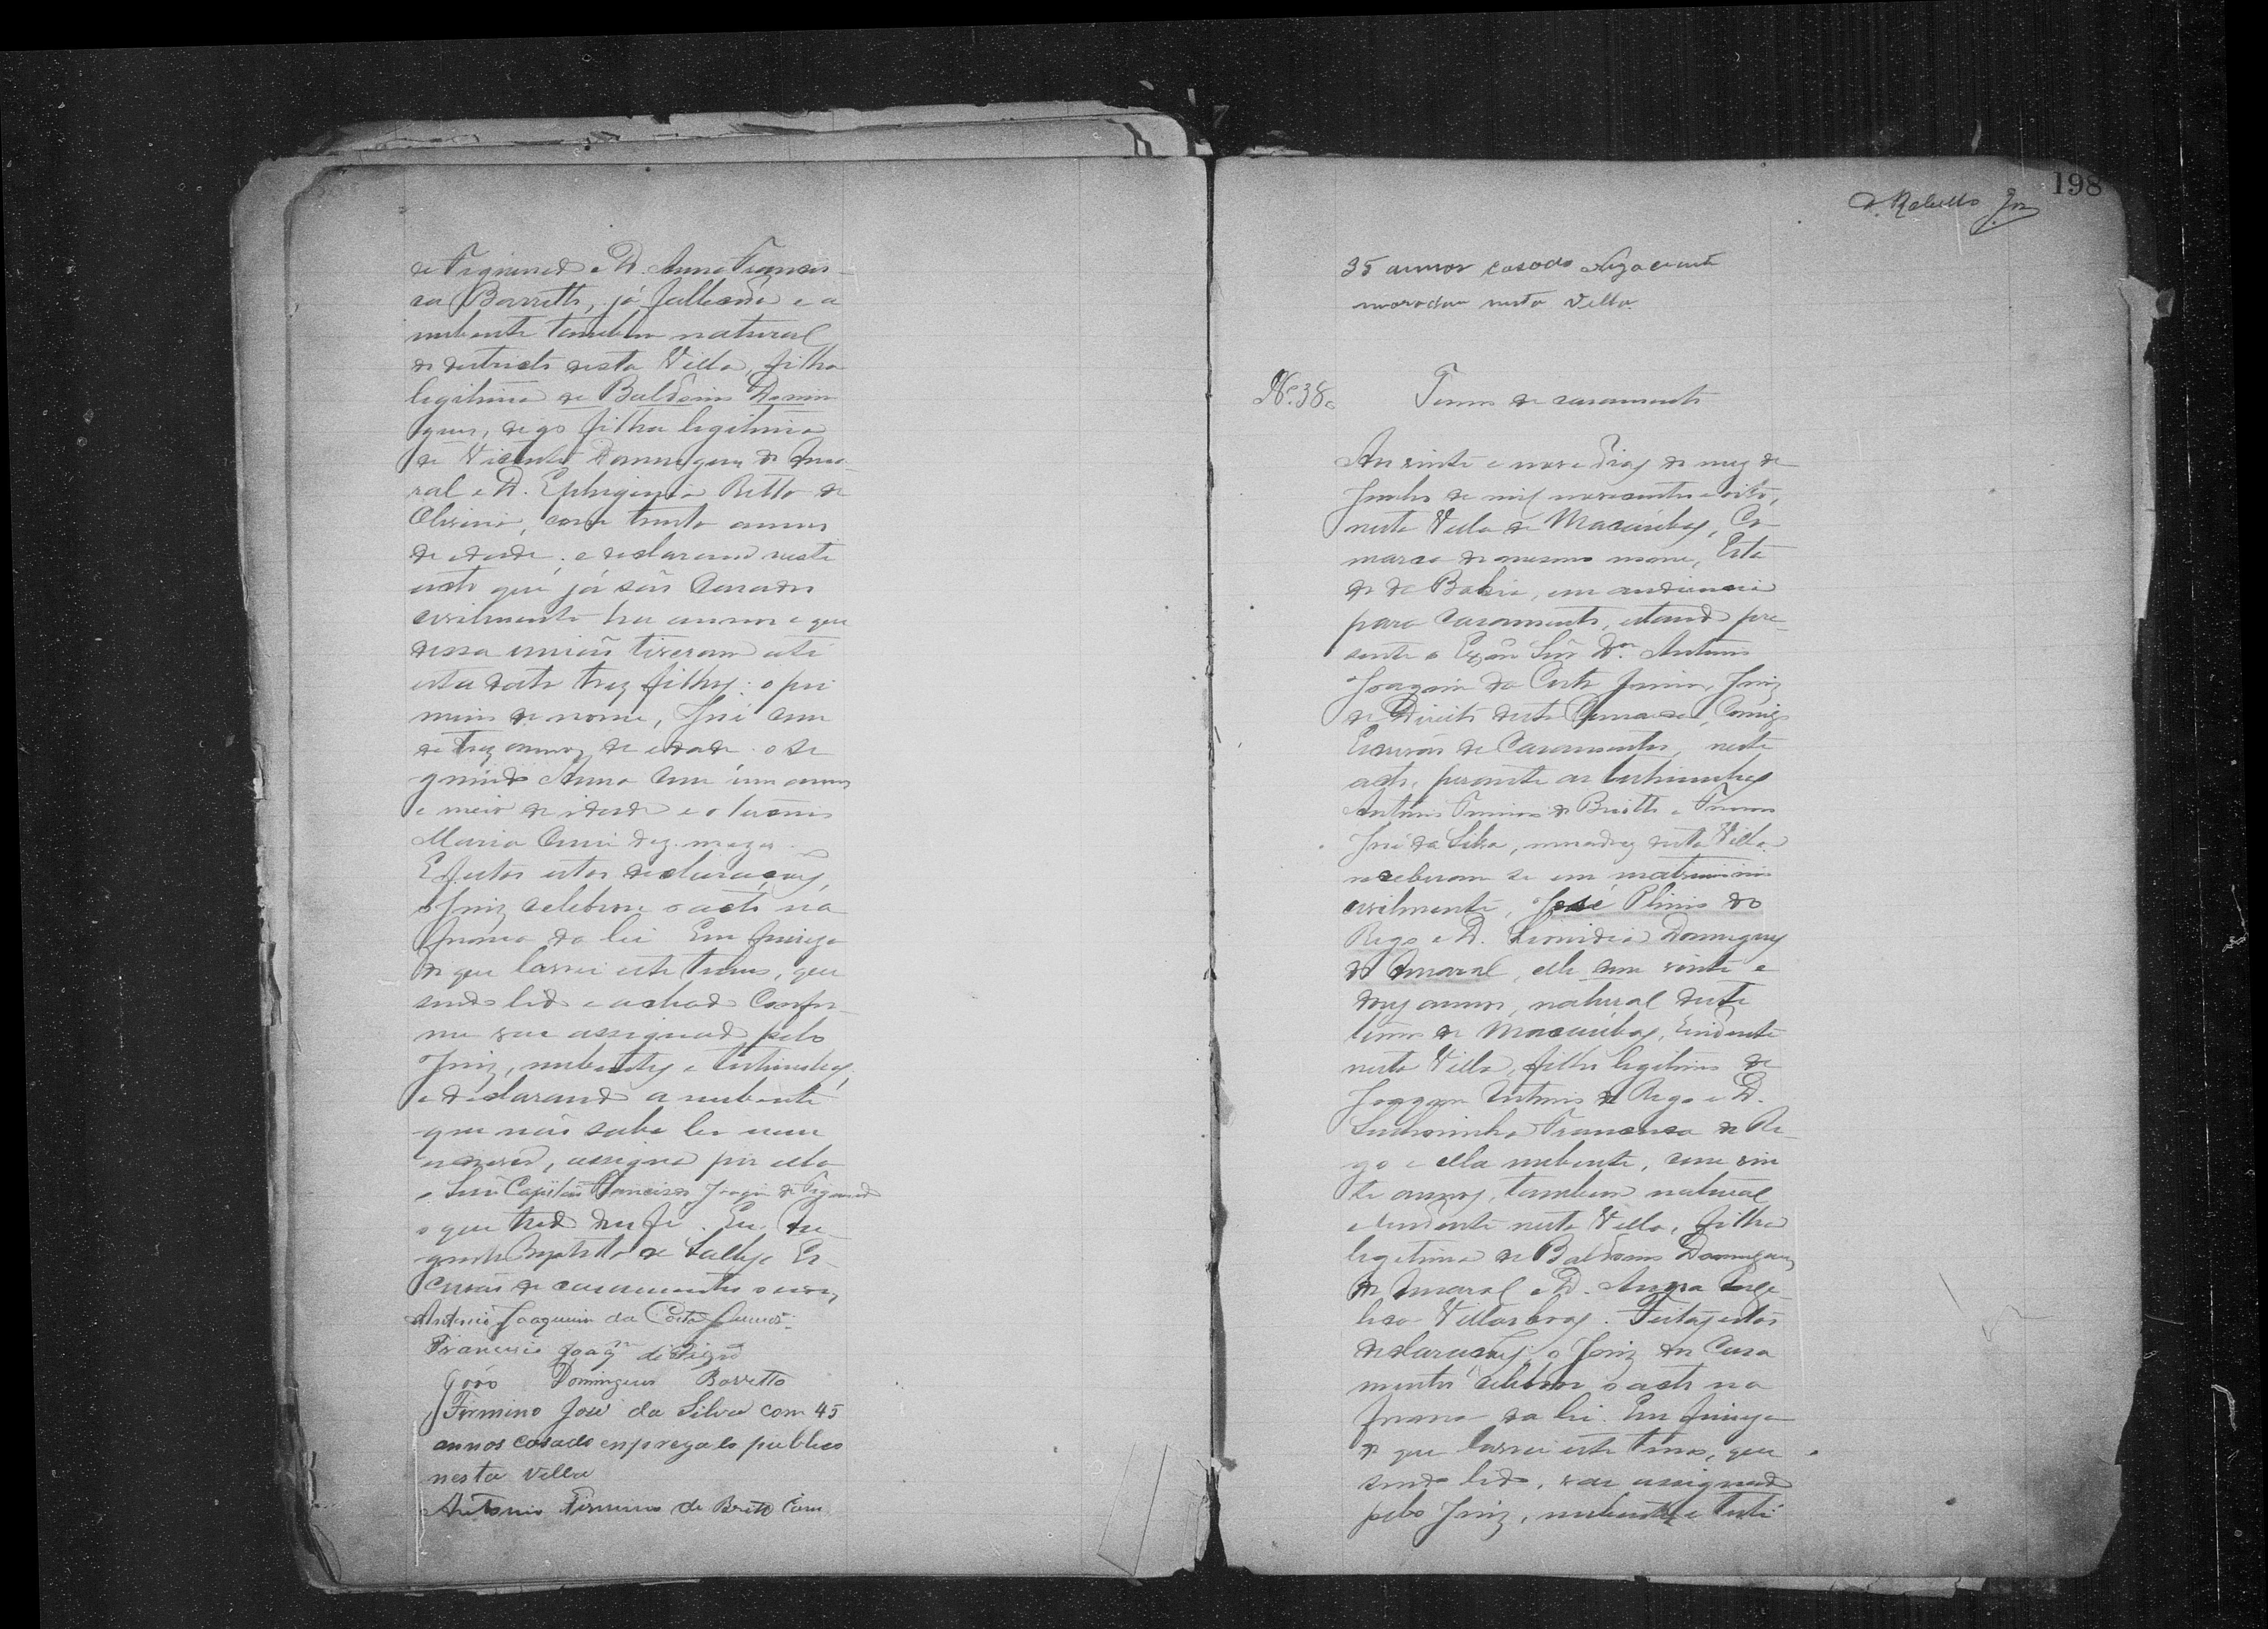 de Figueredo e D. Anna Francis-
ca Barretto, já fallecida e a
nubente tambem natural
do districto desta Villa, filha
legitima de Baldoino Domin
gues, digo filha legitima
de Vicente Domingues do Ama-
ral e D. Ephigenia Britto de
Oliveira, com trinta annos
de edade; e declararam neste
acto que já são casados
civilmente ha annos e que
dessa união tiveram até
esta data trez filhos: o pri
meiro de nome, José com
de trez annos de edade o se
gundo Anna com um anno
e meio de idade e o terceiro
Maria com dez mezes.
E feitas estas declarações,
o Juiz celebrou o acto na
forma da lei Em firmeza
do que lavrei este termo, que
sendo lido e achado confor-
me vae assignado pelo
Juiz, nubentes e testimunhas,
e declarando a nubente
que não sabe ler nem
escrever, assigna por ella
o Snr Capitão Francisco Joaqim de Figueredo
o que tudo dou fé. Eu,
Baptista de Es-
crivão de casamentos o escrevi,
Antonio Joaquim da Costa Junior
Francisco Joaqm de Figdo
João Domingues Barretto
Firmino José da Silva com 45
annos casado enpregado publico
nesta Villa
Antonio Firmino de Britto com
198
Rabello Jr
35 annos casado Negociante
morador nesta Villa.
No. 38.
Termo de casamento
Aos vinte e nove dias do mez de
Junho de mil novecentos e oito,
nesta Villa de Macaúbas, Co-
marca do mesmo nome, Esta
do da Bahia, em audiencia
para casamento, estando pre-
sente o Exmo Snr Dor. Antonio
Joaquim da Costa Junior, Juiz
de Direito desta Comarca, Comigo
Escrivão de Casamentos, neste
acto, perante as testimunhas
Antonio Firmino de Britto e Firmino
José da Silva, moradores nesta Villa
receberam se em matrimonio
civilmente, José Plinio do
Rego e D. Leonidia Domingues
do Amaral, elle com vinte e
annos, natural deste
termo de Macaúbas, residente
nesta Villa, filho legitimo de
Joaquim Antonio do Rego e D.
Senhorinha Francisca do Re-
go e ella nubente, com vin
te annos, tambem natural
e residente nesta Villa, filha
legitima de Baldoino Domingues
do Amaral e D. Anna Ange-
lica Villasboas. Feitas estas
declarações, o Juiz dos Casa
mentos celebrou o acto na
forma da lei. Em firmeza
do que lavrei este termo, que
sendo lido, vae assignado
pelo Juiz, nubentes e testi